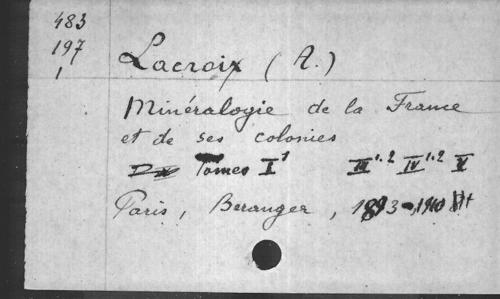 483
197
1
Lacroix (A.)
Minéralogie de la France
et de ses colonies
Tomes I¹ III¹·² IV¹·² V
Paris, Beranger, 1893-1910